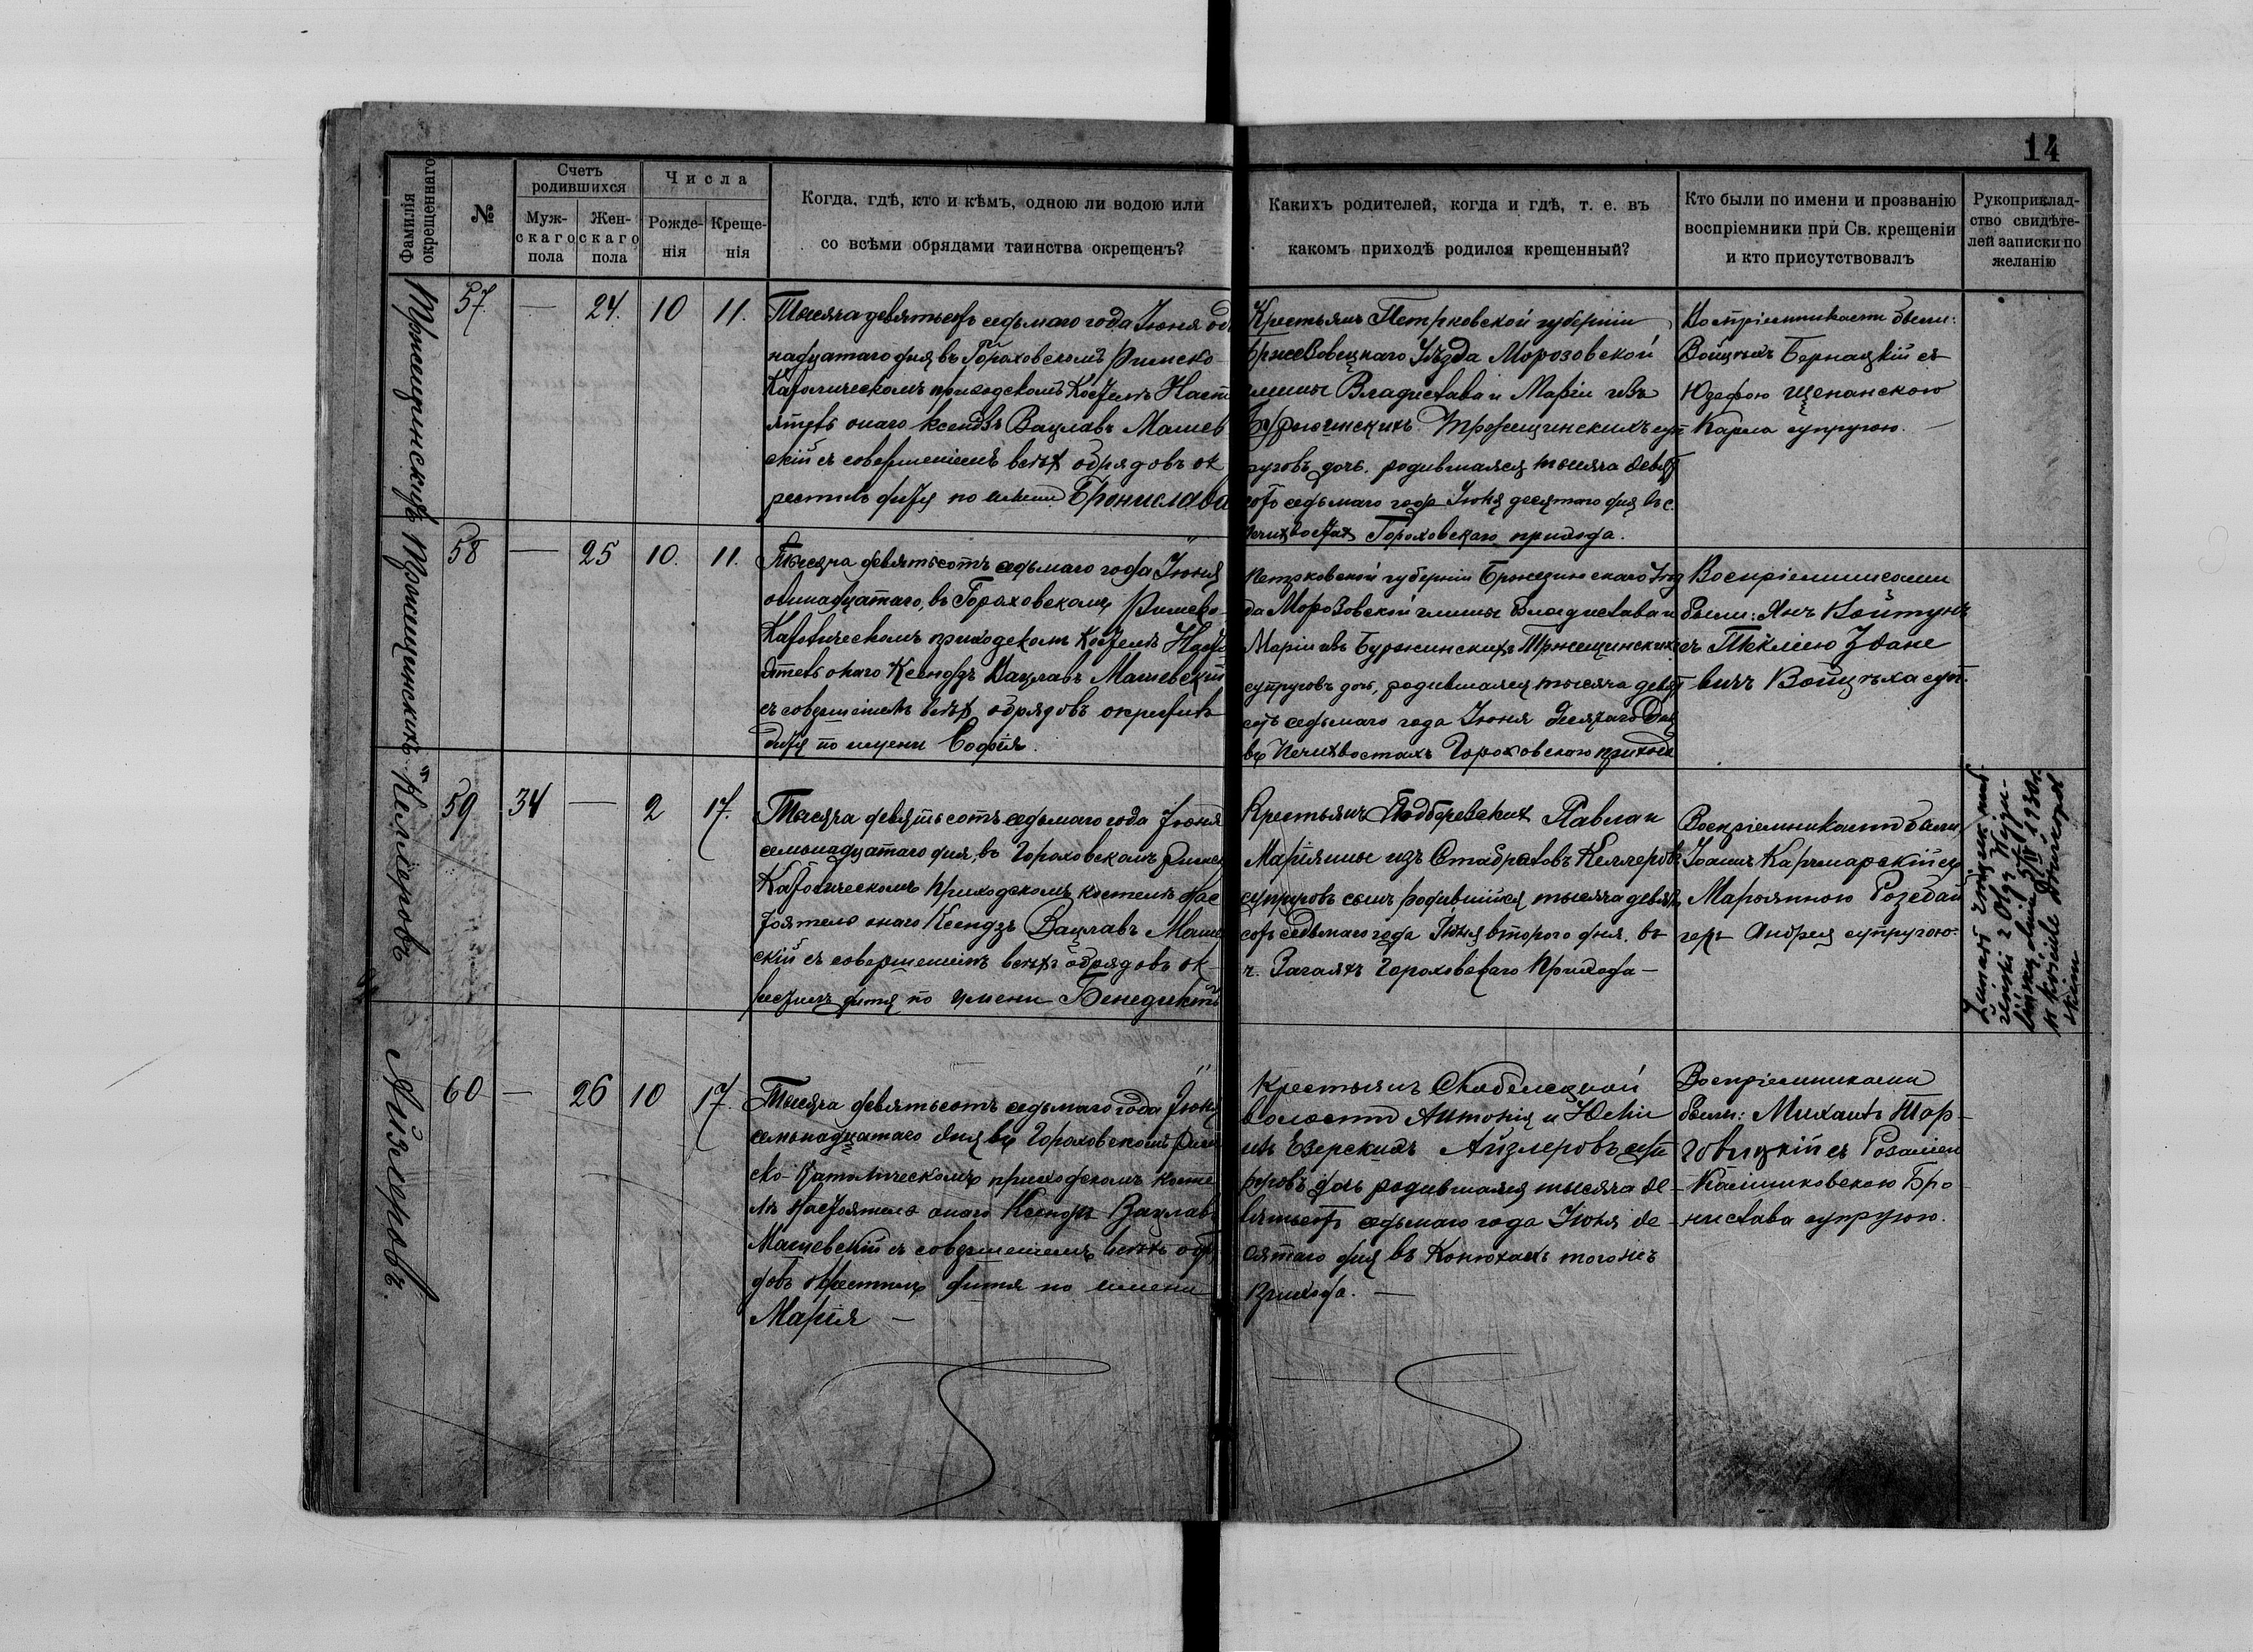 14
Фамилія окрещеннаго
№
Счетъ родившихся
Муж-
скаго
пола
Жен-
скаго
пола
Числа
Рожде-
нія
Креще-
нія
Когда, гдѣ, кто и кѣмъ, одною ли водою или
со всѣми обрядами таинства окрещенъ?
Какихъ родителей, когда и гдѣ, т. е. въ
какомъ приходѣ родился крещенный?
Кто были по имени и прозванію
воспріемники при Св. крещеніи
и кто присутствовалъ
Рукоприклад-
ство свидѣте-
лей записки по
желанію
Тржецинскихъ
57.
—
24.
10
11.
Тысяча девятьсотъ седьмаго года Іюня од
надцатаго дня въ Гороховскомъ Римско-
Католическомъ приходскомъ Костелѣ Наст
ятель онаго Ксендзъ Вацлавъ Машев
скій съ совершеніемъ всѣхъ обрядовъ ок
рестилъ дитя по имени Бронислава
Крестьянъ Петрковской губерніи
Уѣзда Морозовской
гмины Владислава и Маріи изъ
Тржецинскихъ суп
руговъ дочь, родившаяся тысяча девят
сотъ седьмаго года Іюня десятаго дня въ с.
Печихвостахъ Гороховскаго прихода.
Воспріемниками были:
Войцѣхъ Бернацкій съ
Юзефою Щепанскою
Карла супругою. —
Тржещинскихъ
58
—
25
10.
11.
Тысяча девятьсотъ седьмаго года Іюня
одинадцатаго, въ Гороховскомъ Римско-
Католическомъ приходскомъ Костелѣ Насто
ятель онаго Ксендзъ Вацлавъ Машевскій
съ совершеніемъ всѣхъ обрядовъ окрестилъ
дитя по имени Софія.
Петрковской губерніи Брежзинскаго Уѣз
да Морозовскій гмины Владислава и
Маріи изъ Буржинскихъ Тржещинскихъ
супруговъ дочь, родившаяся тысяча девят
сотъ седьмаго года Іюня десятаго дня
въ Печихвостахъ Гороховскаго прихода
Воспріемниками
были: Янъ Войтунъ
съ Теклею Здане
вичъ Войцѣха суп.
Келлеровъ
59
34
—
2
17.
Тысяча девятьсотъ седьмаго года Іюня
семьнадцатаго дня, въ Гороховскомъ Римско
Католическомъ приходскомъ костелѣ Нас
тоятель онаго Ксендзъ Вацлавъ Машев
скій съ совершеніемъ всѣхъ обрядовъ ок-
рестилъ дитя по имени Бенедиктъ
Крестьянъ Павла и
Маріянны изъ Келлеровъ
супруговъ сынъ родившійся тысяча девят
сотъ седьмаго года Іюня второго дня, въ
ч. Загаяхъ Гороховскаго Прихода —
Воспріемниками были
Іоаннъ Карчмарскій съ
Маріянною
Андрея супругою.
Zawarł związek mał-
żeński z Olgą
dnia 5/IV 1930 r.
w kościele
Айзлеровъ.
60
—
26
10
17.
Тысяча девятьсотъ седьмаго года Іюня
семьнадцатаго дня въ Гороховскомъ Рим
ско-Католическомъ приходскомъ косте
лѣ Настоятель онаго Ксендзъ Вацлавъ
Машевскій съ совершеніемъ всѣхъ обря
довъ окрестилъ дитя по имени
Марія —
Крестьянъ Скобелецкой
волости Антонія и Юліи
изъ Езерскихъ Айзлеровъ суп
руговъ дочь родившаяся тысяча де-
вятьсотъ седьмаго года Іюня де-
сятаго дня въ Конюхахъ тогоже
Прихода. —
Воспріемниками
были: Михаилъ Тар-
говицкій съ Розаліею
Калишковскою Бро-
нислава супругою.